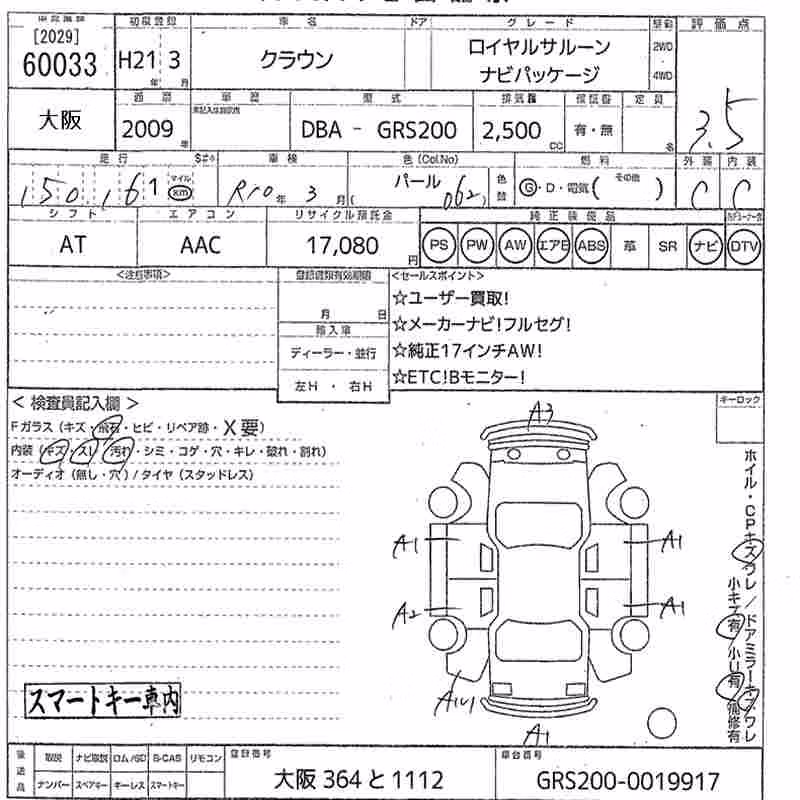 [2029]
60033
初度登録
H21 3
年 月
車名
クラウン
ドア
グレード
ロイヤルサルーン
ナビパッケージ
2WD
4WD
評価点
3.5
大阪
2009
年
型式
DBA - GRS200
排気量
2,500
CC
有・無
定員
名
走行
150,161
マイル
km
車検
R10年 3月
色 (Col.No)
パール
062
燃料
G・D・電気( その他 )
外装
C
内装
C
シフト
AT
エアコン
AAC
リサイクル預託金
17,080
円
純正装備品
PS PW AW エアB ABS 革 SR ナビ DTV
<注意事項>
登録書類有効期限
月 日
輸入車
ディーラー・並行
左H・右H
<セールスポイント>
☆ユーザー買取!
☆メーカーナビ!フルセグ!
☆純正17インチAW!
☆ETC!Bモニター!
< 検査員記入欄 >
Fガラス (キズ・飛石・ヒビ・リペア跡・X要)
内装 (キズ・スレ・汚れ・シミ・コゲ・穴・キレ・破れ・割れ)
オーディオ (無し・穴) / タイヤ (スタッドレス)
キーロック
A3
A1
A1
A2
A1
A1
ホイル・CPキズ・ワレ / ドアミラーキズ・ワレ
小キズ有 小U有 補修有
スマートキー車内
後送品
取説 ナビ取説 ロム/SD B-CAS リモコン
ナンバー スペアキー キーレス スマートキー
登録番号
大阪 364 と 1112
車台番号
GRS200-0019917